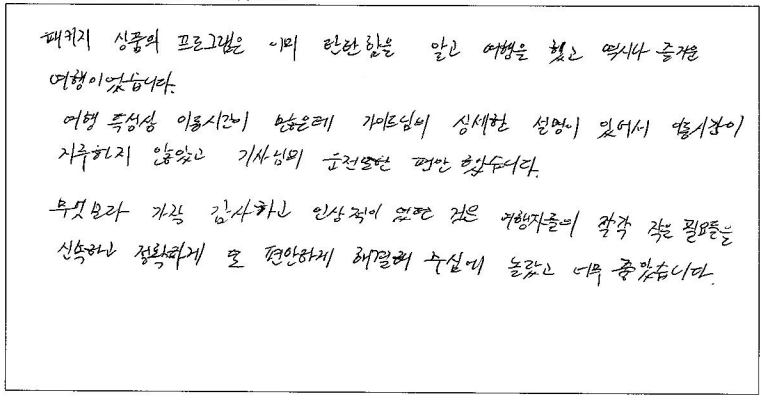 패키지 상품의 프로그램은 이미 탄탄함을 알고 여행을 했고 역시나 즐거운
여행이었습니다.
여행 특성상 이동시간이 많은데 가이드님의 상세한 설명이 있어서 이동시간이
지루하지 않았고 기사님의 운전 또한 편안했습니다.
무엇보다 가장 감사하고 인상적이었던 것은 여행자들의 각각 작은 필요들을
신속하고 정확하게 또 편안하게 해결해 주심에 놀랐고 너무 좋았습니다.